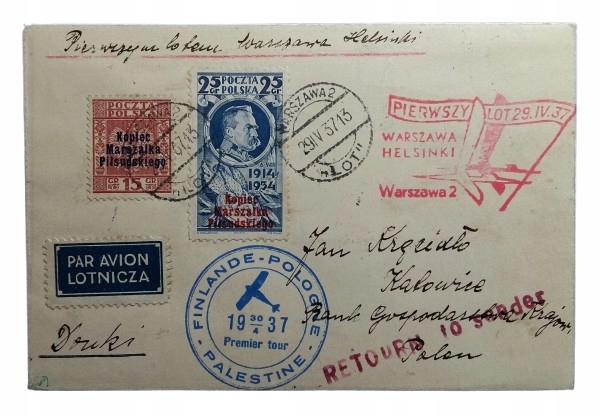 Pierwszym lotem Warszawa Helsinki
POCZTA
POLSKA
Kopiec
Marszałka
Piłsudskiego
GR 15 GR
25 GR POCZTA POLSKA 25 GR
1914
1934
Kopiec
Marszałka
Piłsudskiego
WARSZAWA 2
29.IV 37.13
"LOT"
PIERWSZY LOT 29.IV.37
WARSZAWA
HELSINKI
Warszawa 2
PAR AVION
LOTNICZA
FINLANDE-POLOGNE-PALESTINE
30
1937
4
Premier tour
Druki
Jan Krzcidło
Katowice
Bank Gospodarstwa Krajow.
Polen
RETOUR to sender